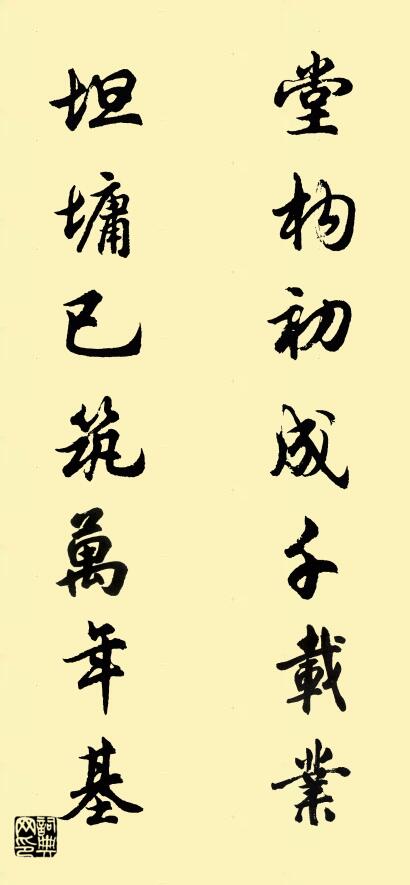 堂构初成千載業
坦墉已筑萬年基
詞典网印